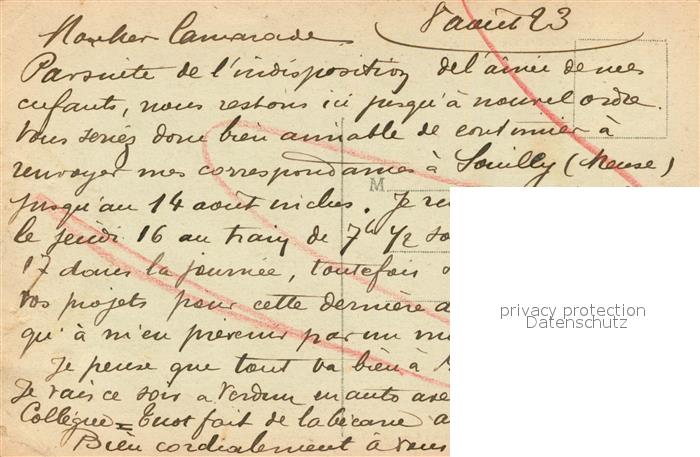 8 août 23
Mon cher Camarade
Par suite de l'indisposition de l'ainée de mes
enfants, nous restons ici jusqu'à nouvel ordre.
Vous seriez donc bien aimable de continuer à
renvoyer mes correspondances à Souilly (Meuse)
M
jusqu'au 14 août inclus. Je
le jeudi 16 au train de 7h 1/2
17 dans la journée, toutefois
vos projets pour cette dernière
qu'à m'en prévenir par un
Je pense que tout va bien à
Je vais ce soir à Verdun en auto
Collègue = fait de la bécane
Bien cordialement à vous
privacy protection
Datenschutz